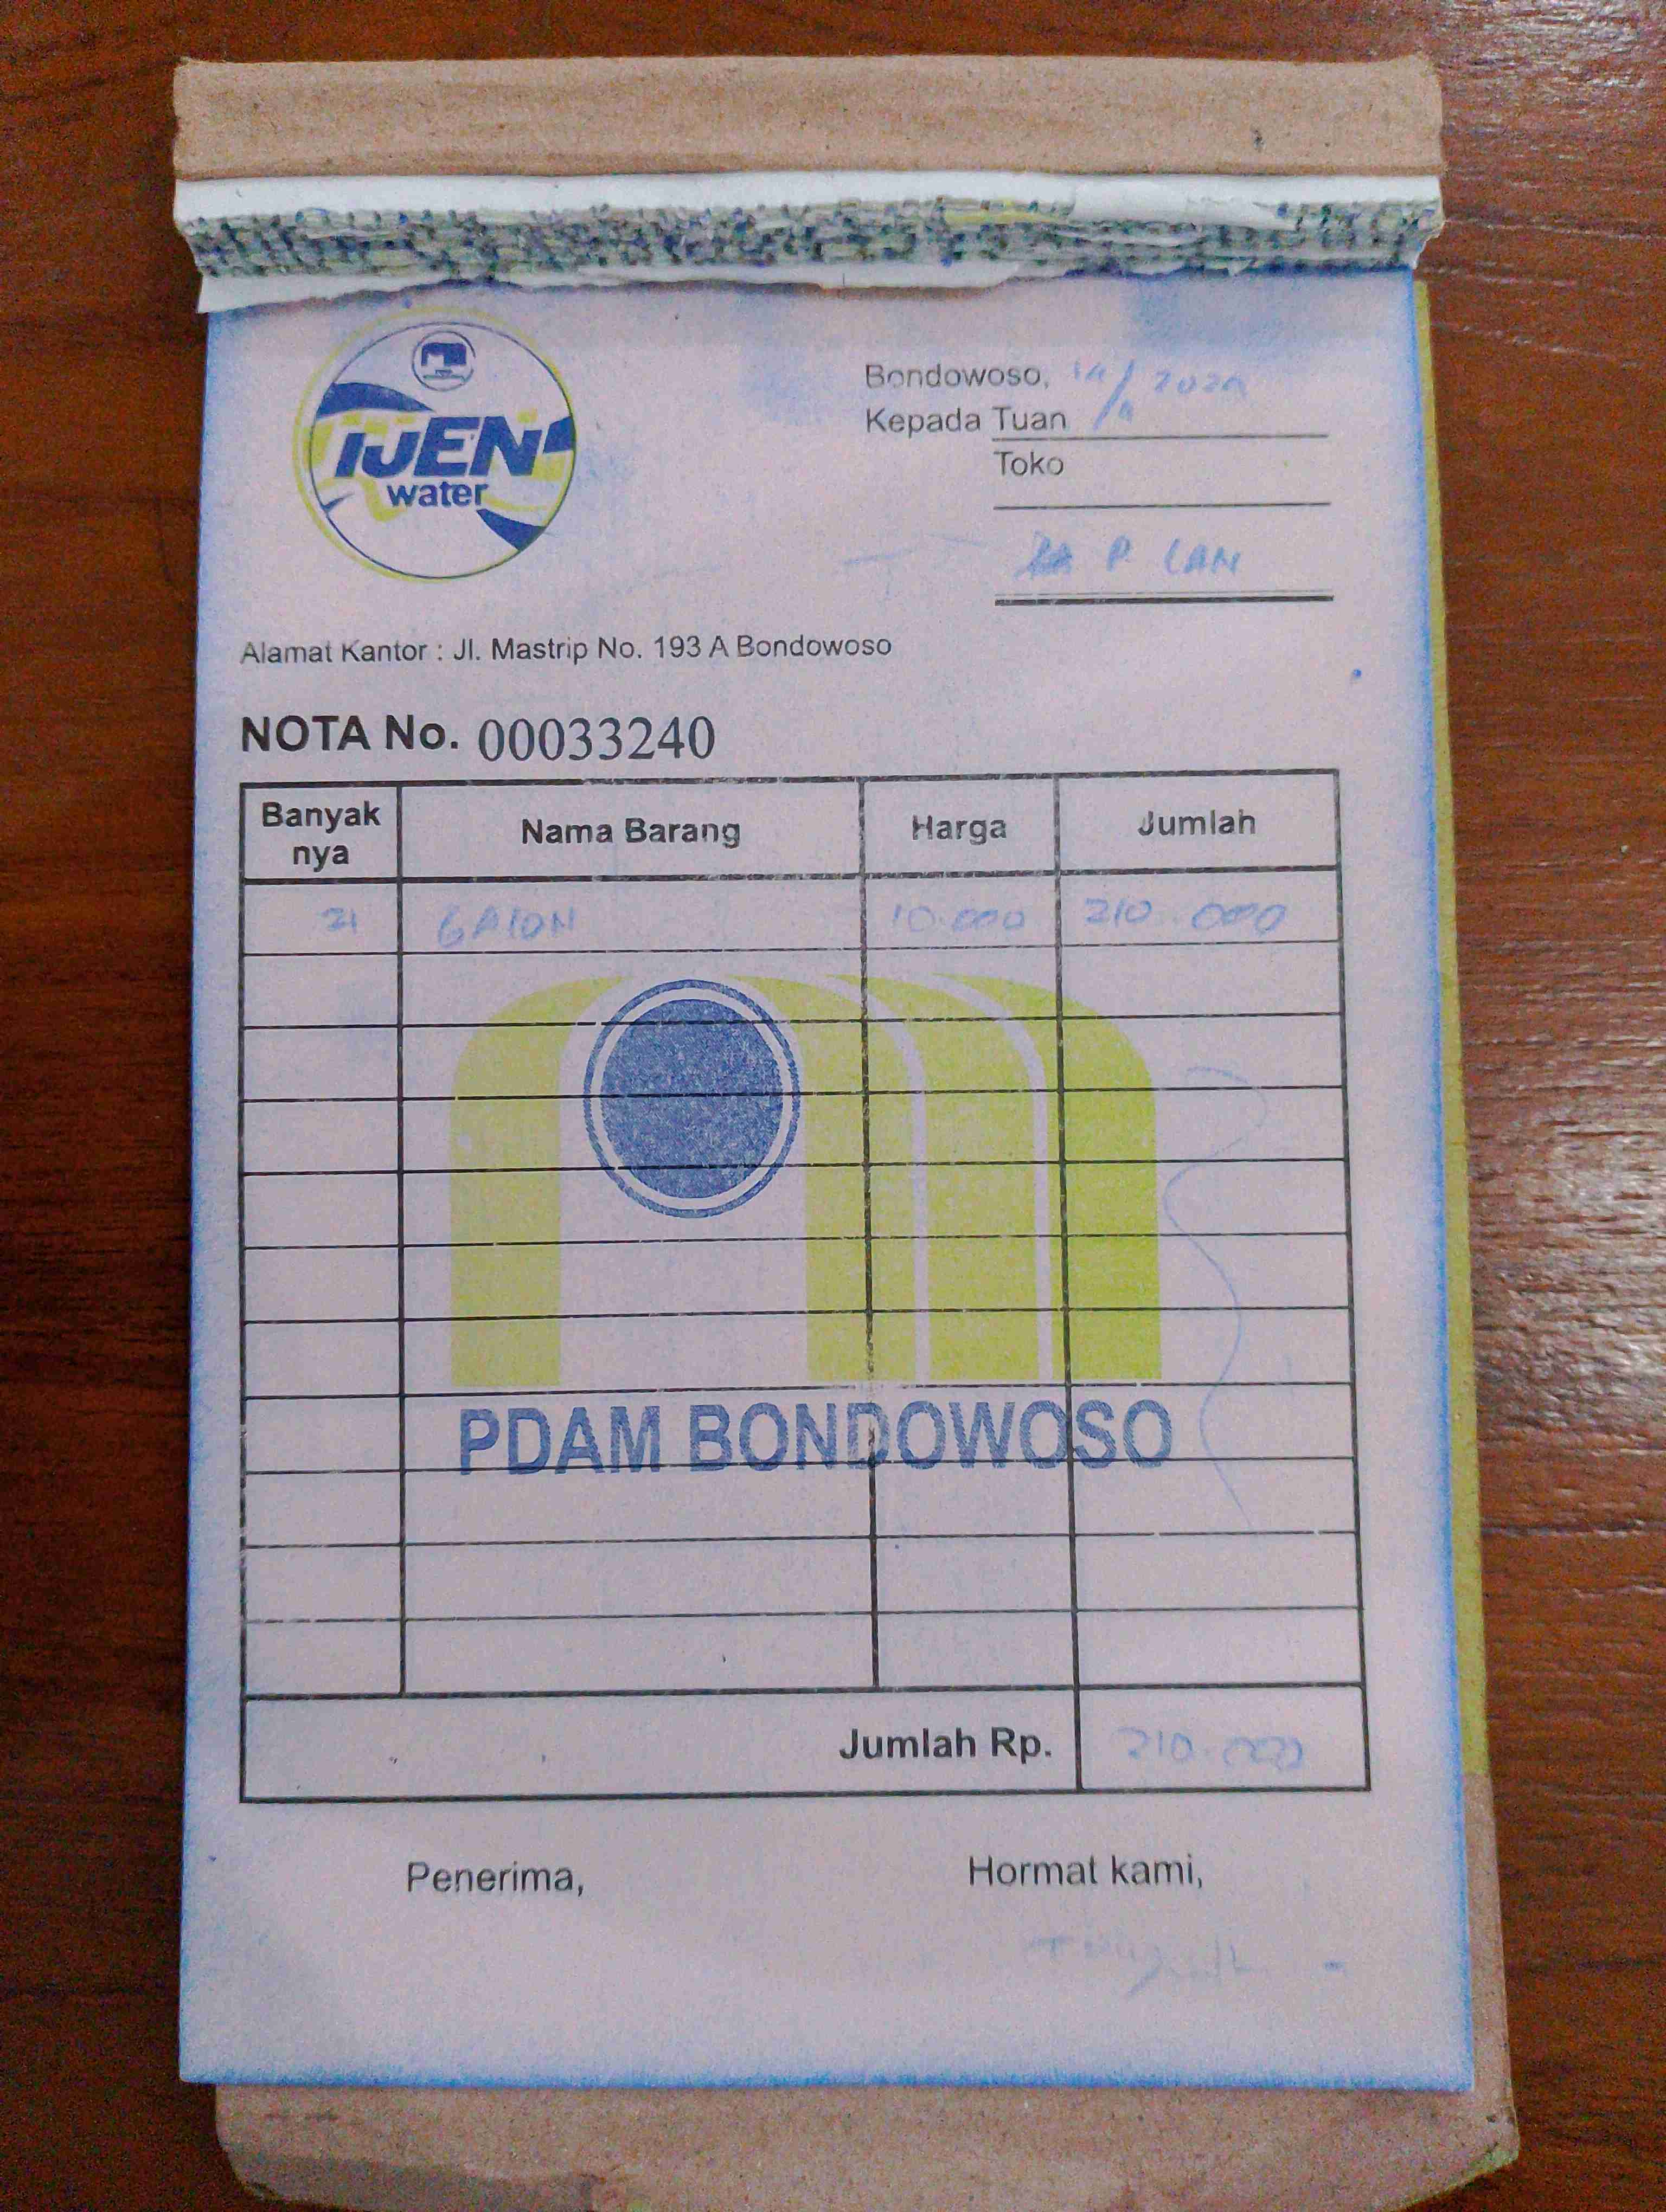 IJEN
water
Bondowoso, 14/ 2024
Kepada Tuan
Toko
P. LAN
Alamat Kantor : Jl. Mastrip No. 193 A Bondowoso
NOTA No. 00033240
Banyak nya Nama Barang Harga Jumlah
21 GALON 10.000 210.000
PDAM BONDOWOSO
Jumlah Rp. 210.000
Penerima, Hormat kami,